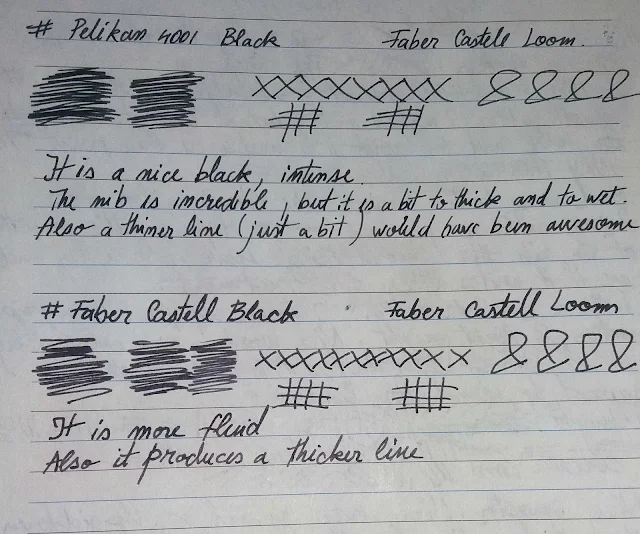 # Pelikan 4001 Black Faber Castell Loom.
& & & &
It is a nice black, intense.
The nib is incredible, but it is a bit to thick and to wet.
Also a thiner line (just a bit) would have been awesome
# Faber Castell Black Faber Castell Loom
& & & &
It is more fluid
Also it produces a thicker line